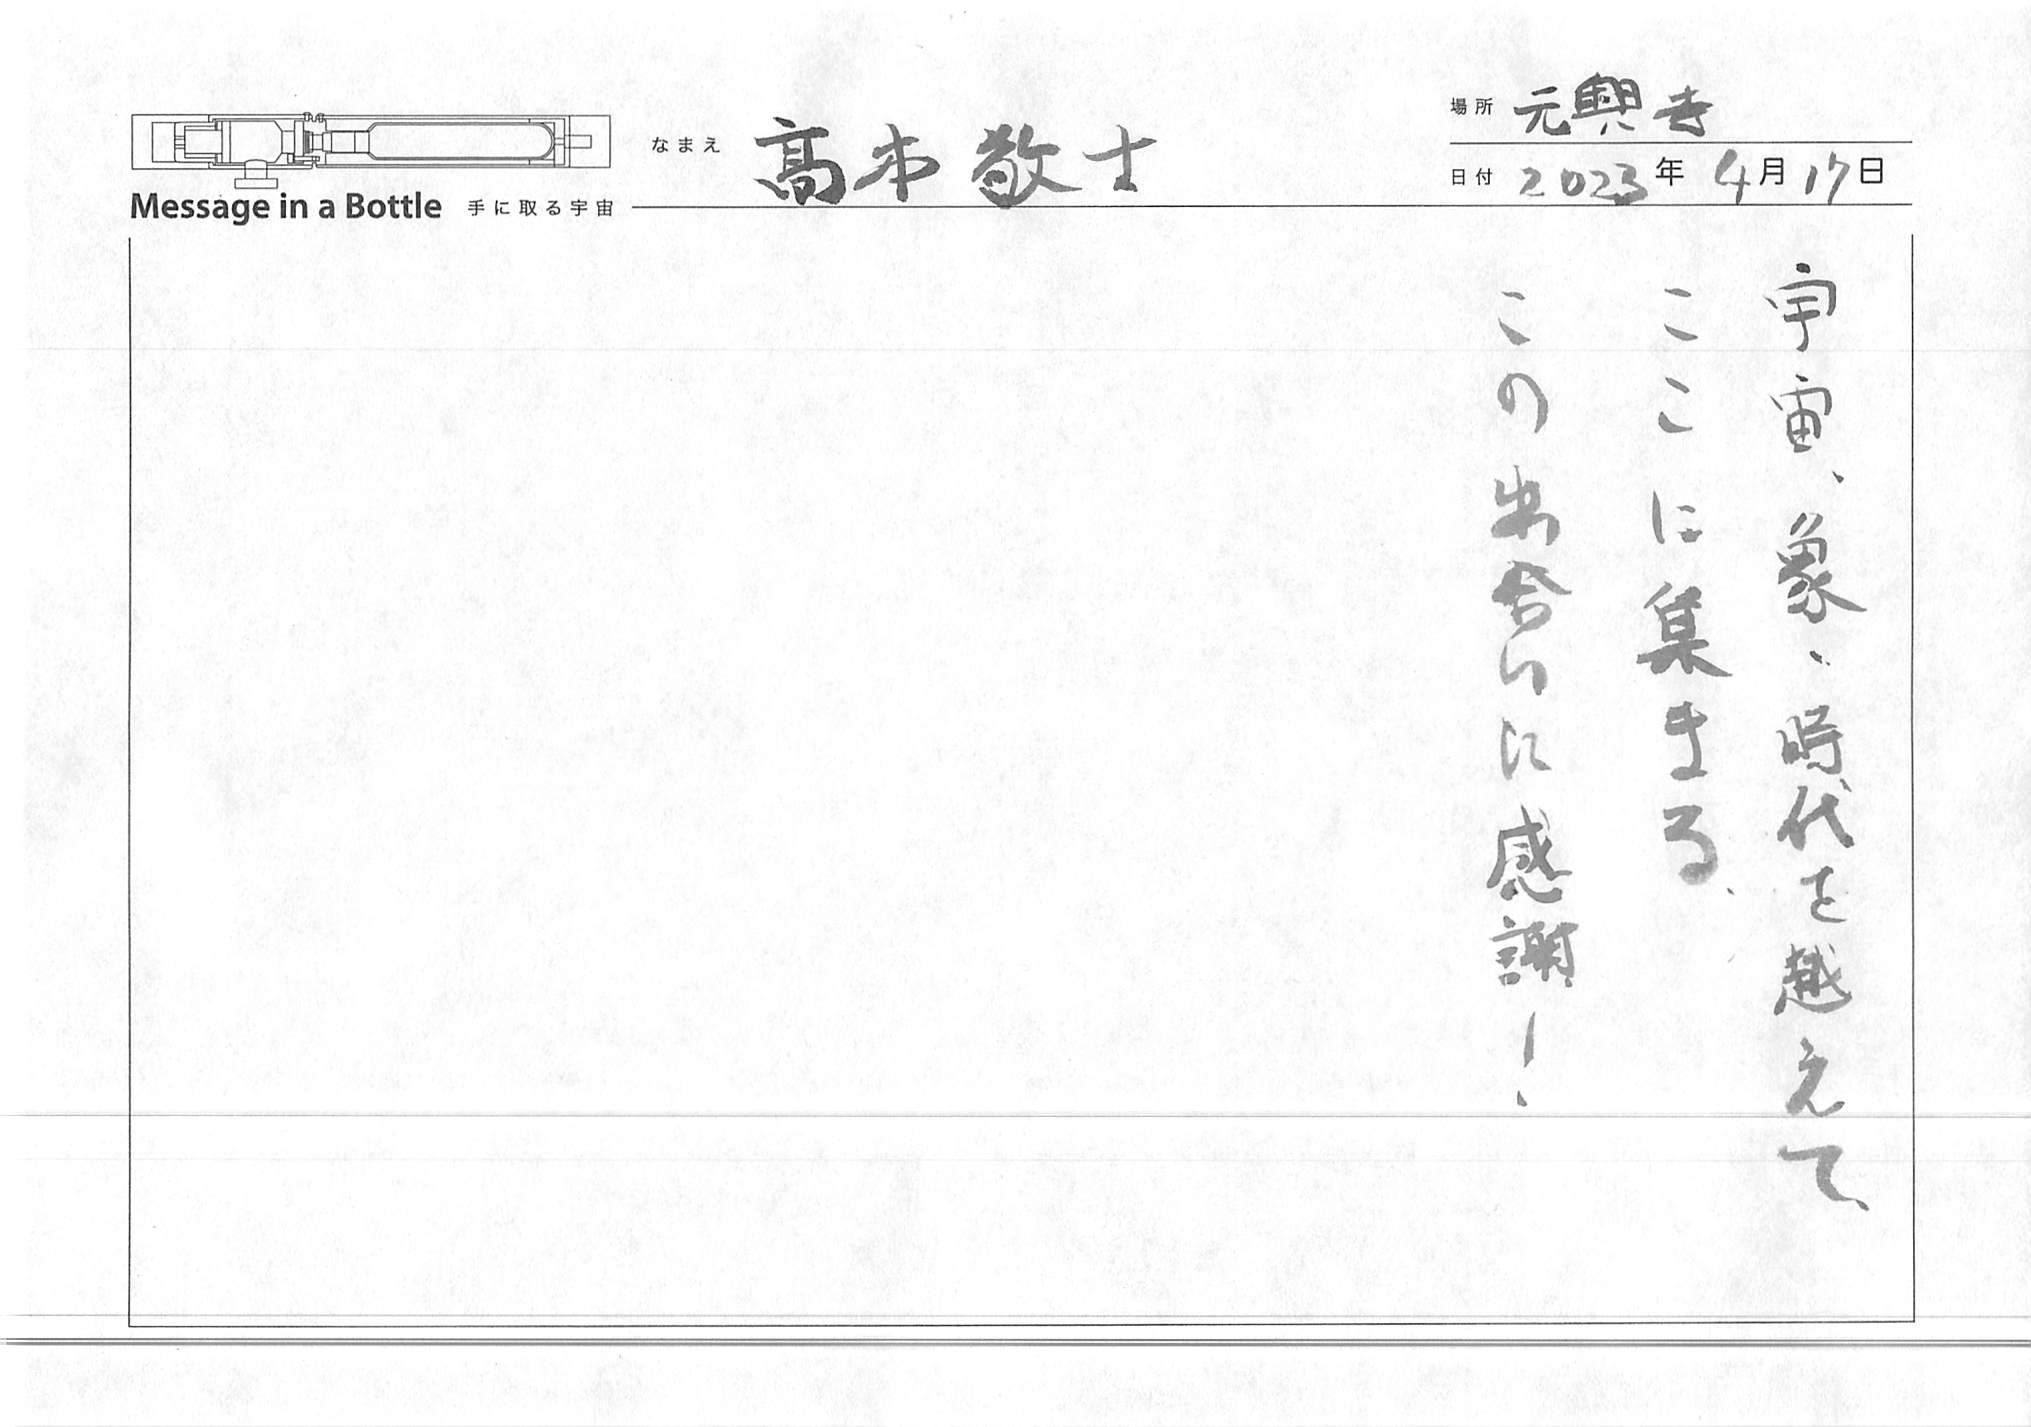 Message in a Bottle 手に取る宇宙
なまえ 高本敬士
場所 元興寺
日付 2023年 4月17日
宇宙、象、時代を越えて
ここに集まる、
この出合いに感謝!